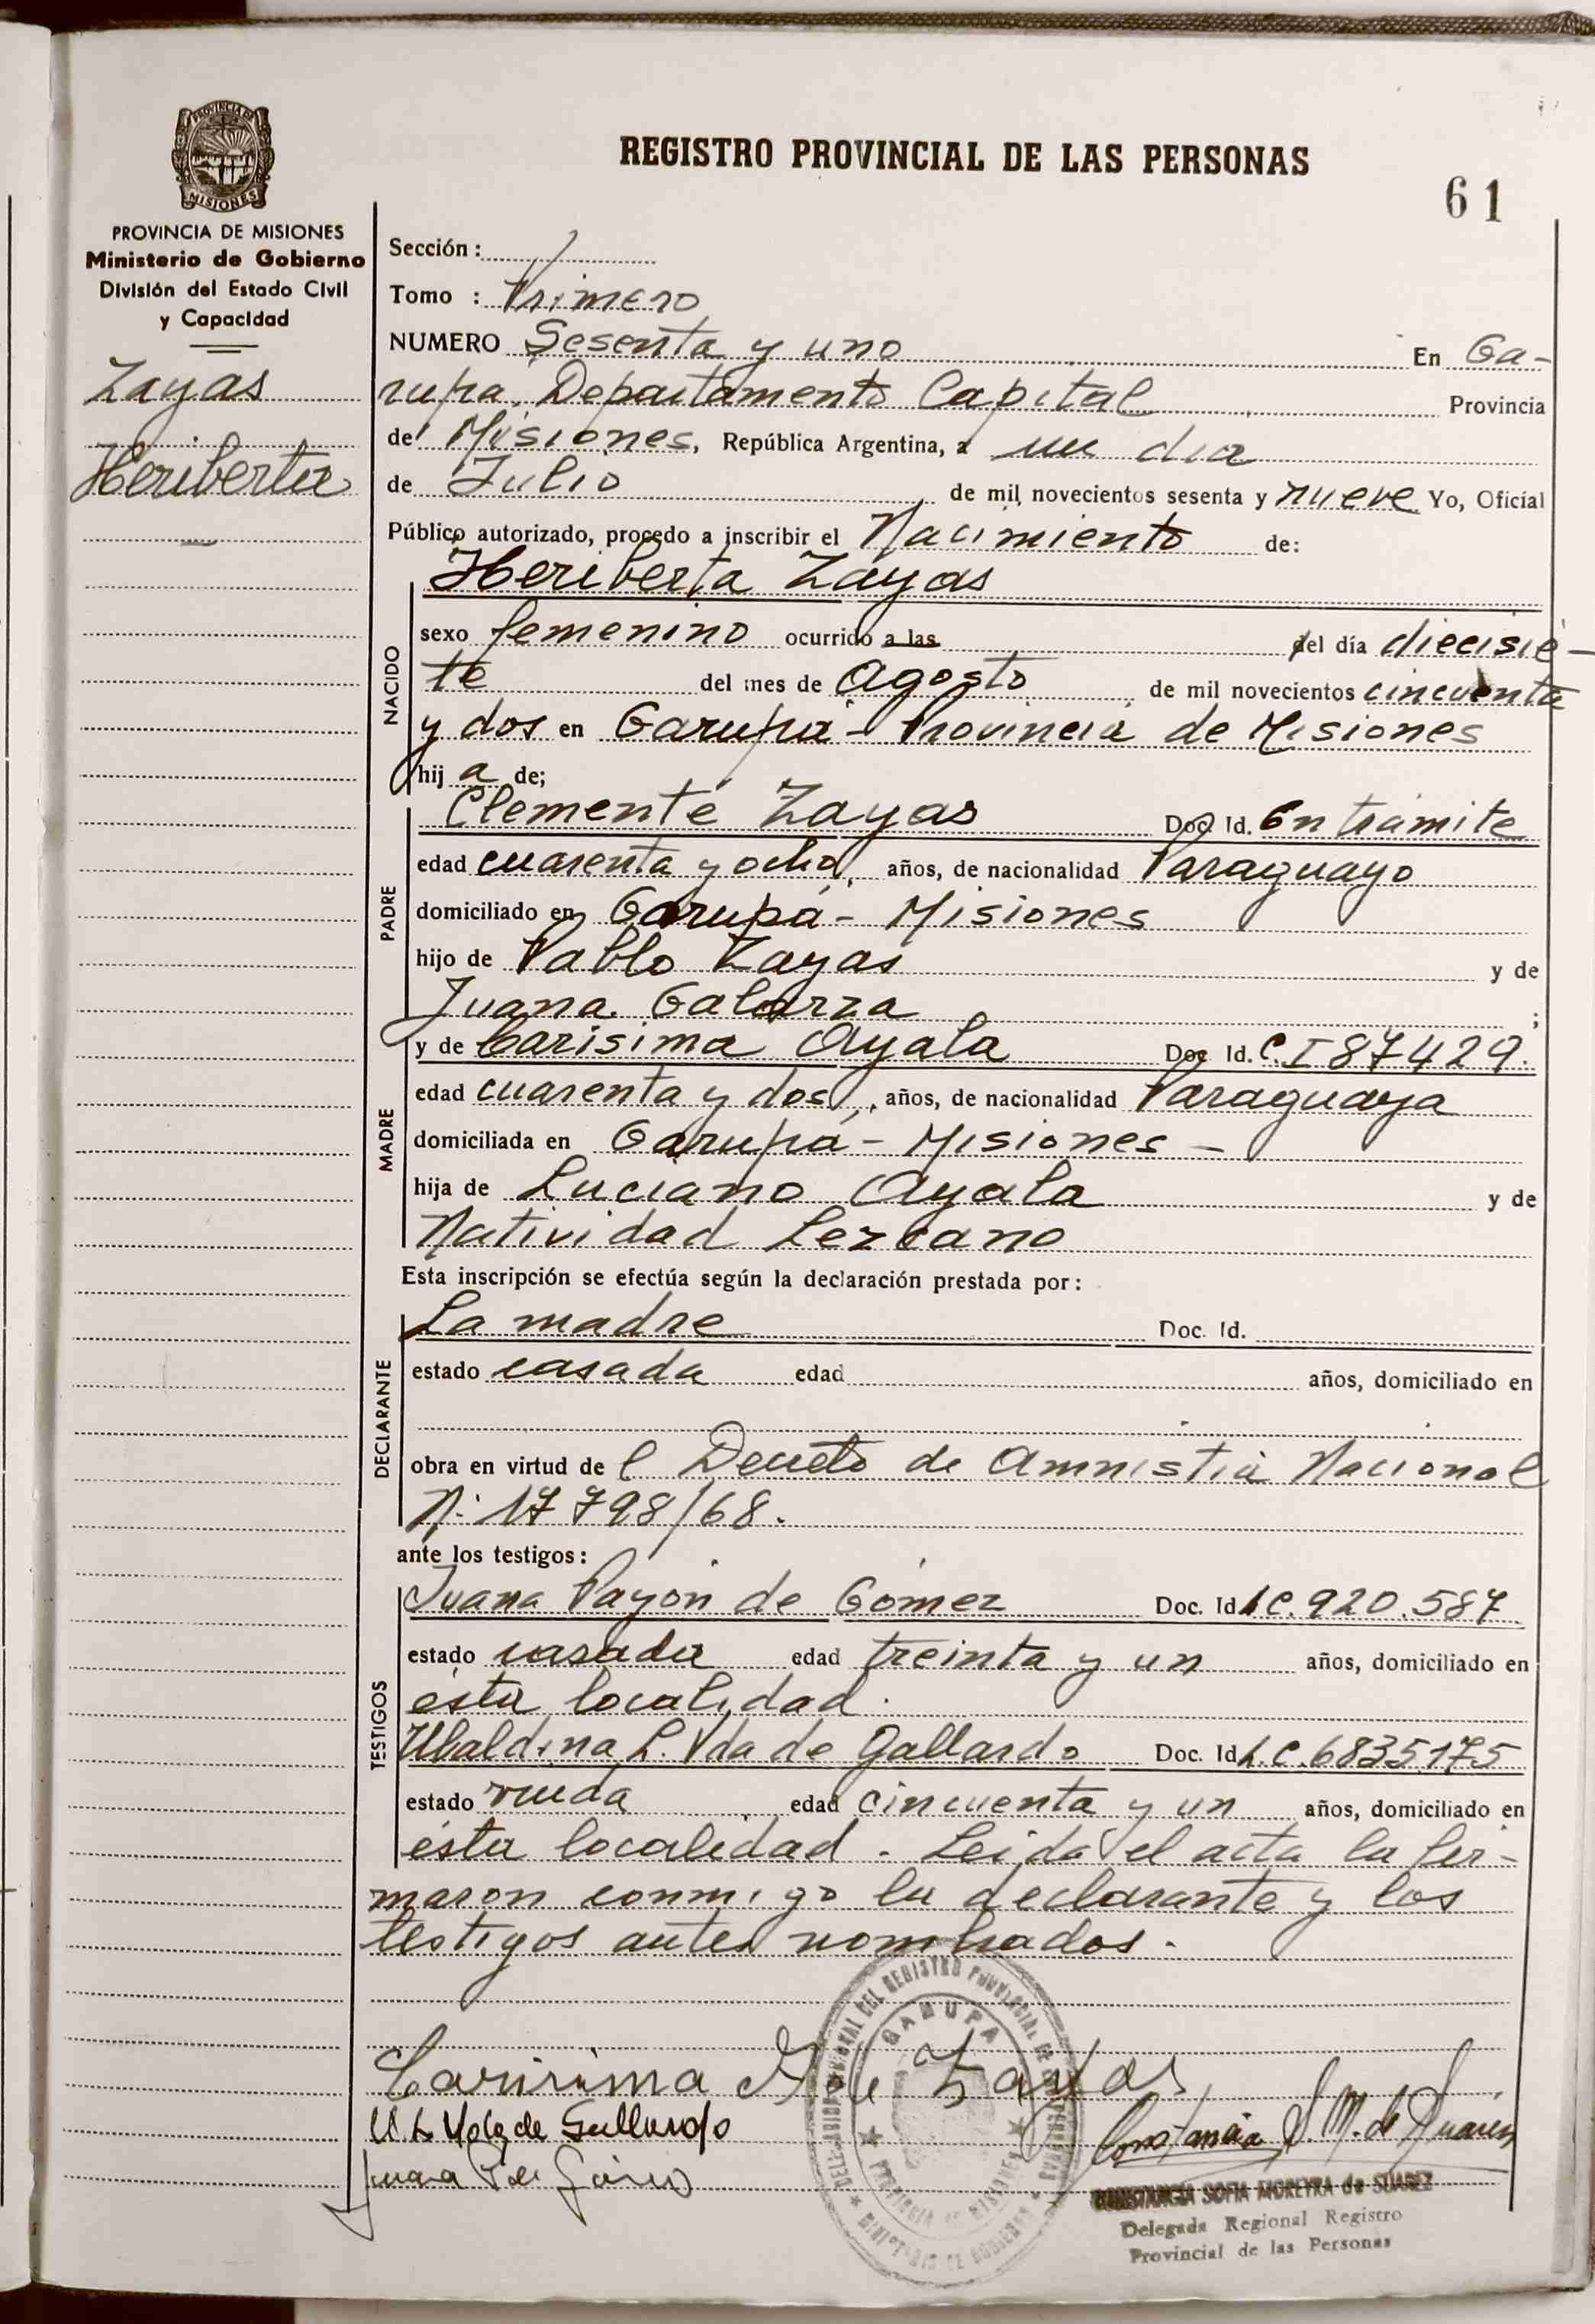 PROVINCIA DE
MISIONES
REGISTRO PROVINCIAL DE LAS PERSONAS
61
PROVINCIA DE MISIONES
Ministerio de Gobierno
División del Estado Civil
y Capacidad
Zayas
Heriberta
Sección :
Tomo : Primero
NUMERO Sesenta y uno En Ga-
rupa, Departamento Capital Provincia
de Misiones, República Argentina, a un dia
de Julio de mil novecientos sesenta y nueve Yo, Oficial
Público autorizado, procedo a inscribir el Nacimiento de:
Heriberta Zayas
NACIDO
sexo femenino ocurrido a las del día diecisie-
te del mes de Agosto de mil novecientos cincuenta
y dos en Garupá - Provincia de Misiones
hij a de;
PADRE
Clemente Zayas Doc. Id. En trámite
edad cuarenta y ocho, años, de nacionalidad Paraguayo
domiciliado en Garupá - Misiones
hijo de Pablo Zayas y de
Juana Galarza ;
MADRE
y de Carisima Ayala Doc. Id. C.I 87429.
edad cuarenta y dos, años, de nacionalidad Paraguaya
domiciliada en Garupá - Misiones -
hija de Luciano Ayala y de
Natividad Lezcano
Esta inscripción se efectúa según la declaración prestada por :
DECLARANTE
La madre Doc. Id.
estado casada edad años, domiciliado en
obra en virtud de l Decreto de Amnistia Nacional
N: 17798/68.
ante los testigos :
TESTIGOS
Juana Payón de Gómez Doc. Id L.C. 920.587
estado casada edad treinta y un años, domiciliado en
ésta localidad.
Ubaldina L. Vda de Gallardo Doc. Id L.C. 6835175
estado viuda edad cincuenta y un años, domiciliado en
ésta localidad. Leida el acta la fir-
maron conmigo la declarante y los
testigos antes nombrados.
Carisima A de Zayas
U L Vda de Gallardo
Juana P de Gómez
DELEGACION REGIONAL DEL REGISTRO PROVINCIAL DE LAS PERSONAS
GARUPA
PROVINCIA DE MISIONES
MINISTERIO DE GOBIERNO
Constancia S. M. de Suárez
CONSTANCIA SOFIA MOREYRA de SUAREZ
Delegada Regional Registro
Provincial de las Personas